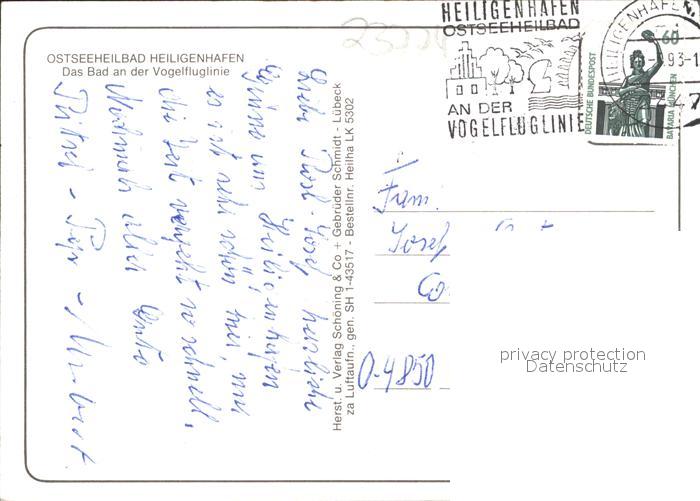 OSTSEEHEILBAD HEILIGENHAFEN
Das Bad an der Vogelfluglinie
Liebe Rosl - Josef, herzliche
Grüsse aus Heiligenhafen
es ist sehr schön hier, nur
die Zeit vergeht so schnell,
Nochmals alles Gute
Herbert
Herst. u. Verlag Schöning & Co + Gebrüder Schmidt - Lübeck
za Luftaufn., gen. SH 1-43517 - Bestellnr. Heilha LK 5302
HEILIGENHAFEN
OSTSEEHEILBAD
AN DER
VOGELFLUGLINIE
HEILIGENHAFEN
93-1
47
60
DEUTSCHE BUNDESPOST
BAVARIA MÜNCHEN
Fam.
Josef
O-4850
privacy protection
Datenschutz